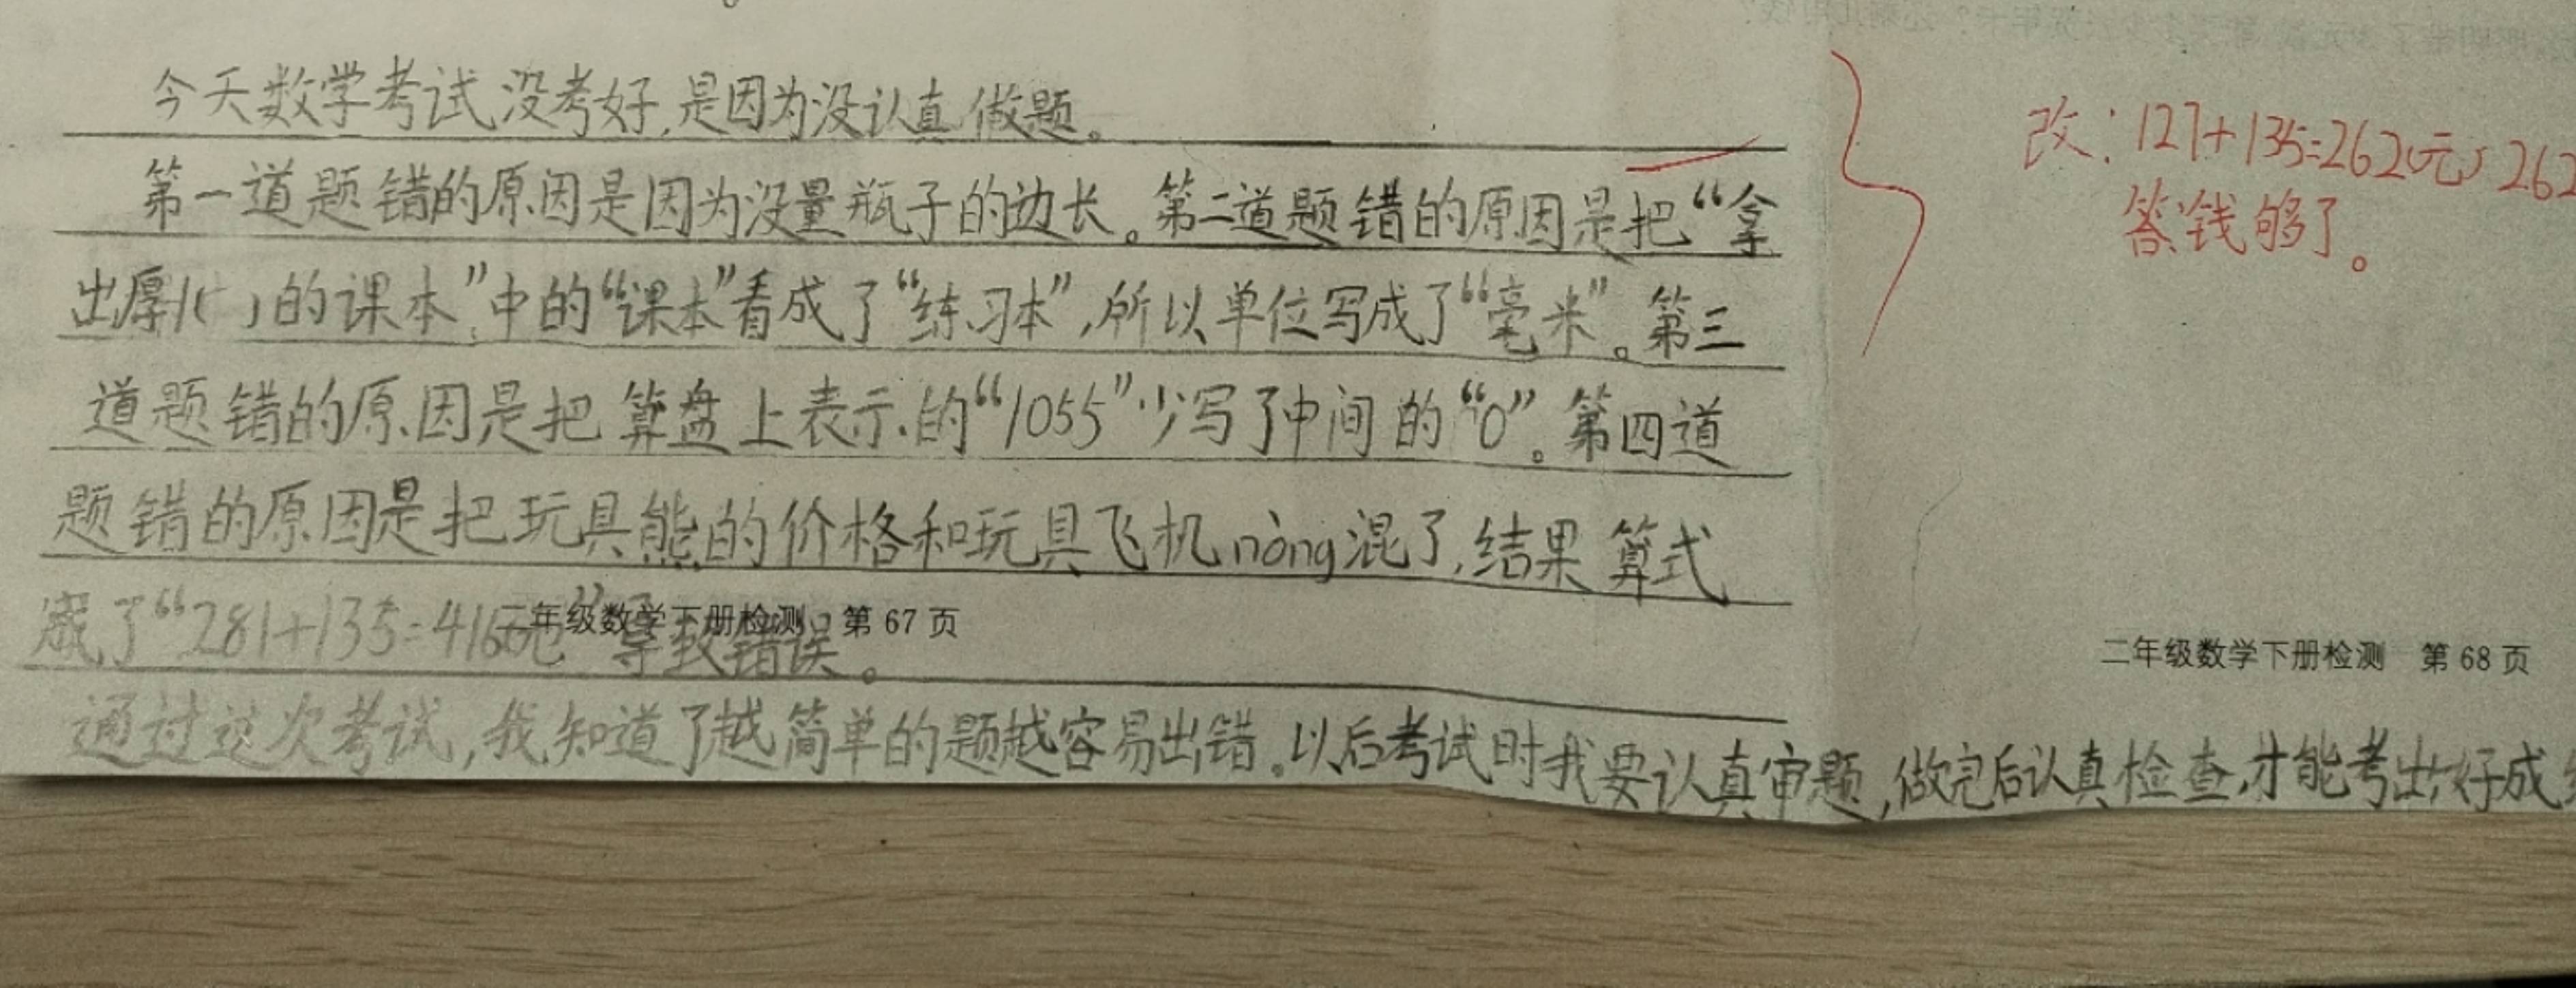 今天数学考试没考好,是因为没认真做题。
第一道题错的原因是因为没量瓶子的边长。第二道题错的原因是把“拿
出厚1( )的课本”中的“课本”看成了“练习本”,所以单位写成了“毫米”。第三
道题错的原因是把算盘上表示的“1055”少写了中间的“0”。第四道
题错的原因是把玩具熊的价格和玩具飞机nòng混了,结果算式
成了“281+135=416元”导致错误。
年级数学下册检测 第67页
通过这次考试,我知道了越简单的题越容易出错。以后考试时我要认真审题,做完后认真检查,才能考出好成
改:127+135=262(元) 262
答:钱够了。
二年级数学下册检测 第68页